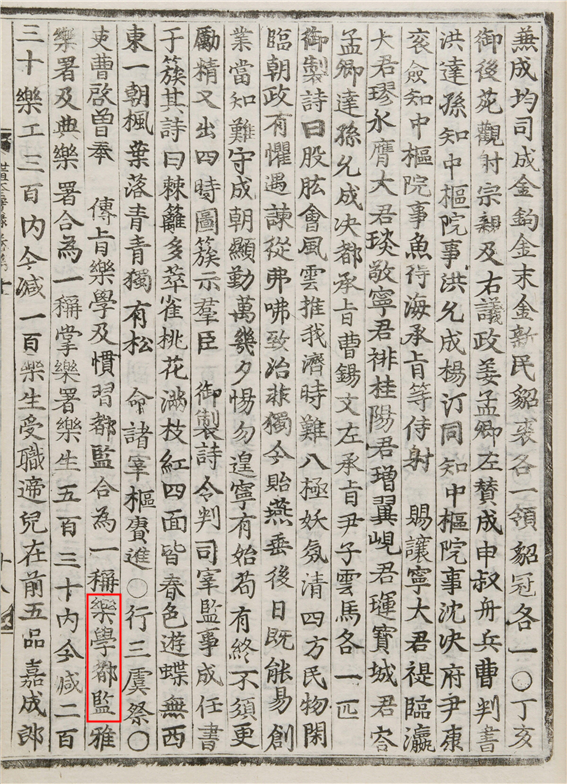 兼成均司成金鈞金末金新民貂裘各一領貂冠各一○丁亥
御後苑觀射宗親及右議政姜孟卿左贊成申叔舟兵曹判書
洪達孫知中樞院事洪允成楊汀同知中樞院事沈決府尹康
衮僉知中樞院事魚得海承旨等侍射 賜讓寧大君禔臨瀛
大君璆永膺大君琰敬寧君裶桂陽君璔翼峴君璭寶城君㝓
孟卿達孫允成決都承旨曹錫文左承旨尹子雲馬各一匹
御製詩曰股肱會風雲推我濟時難八極妖氛清四方民物閑
臨朝政有懼遇諫從弗咈致治非獨今貽燕垂後日既能易創
業當知難守成朝顯勤萬幾夕惕勿遑寧有始苟有終不須更
勵精又出四時圖簇示羣臣 御製詩令判司宰監事成任書
于簇其詩曰棘籬多萃雀桃花滿枝紅四面皆春色遊蝶無西
東一朝楓葉落青青獨有松 命諸宰樞賡進○行三虞祭○
吏曹啓曾奉 傳旨樂學及慣習都監合為一稱樂學都監雅
樂署及典樂署合為一稱掌樂署樂生五百三十內今減二百
三十樂工三百內今減一百樂生受職遞兒在前五品嘉成郎
十八